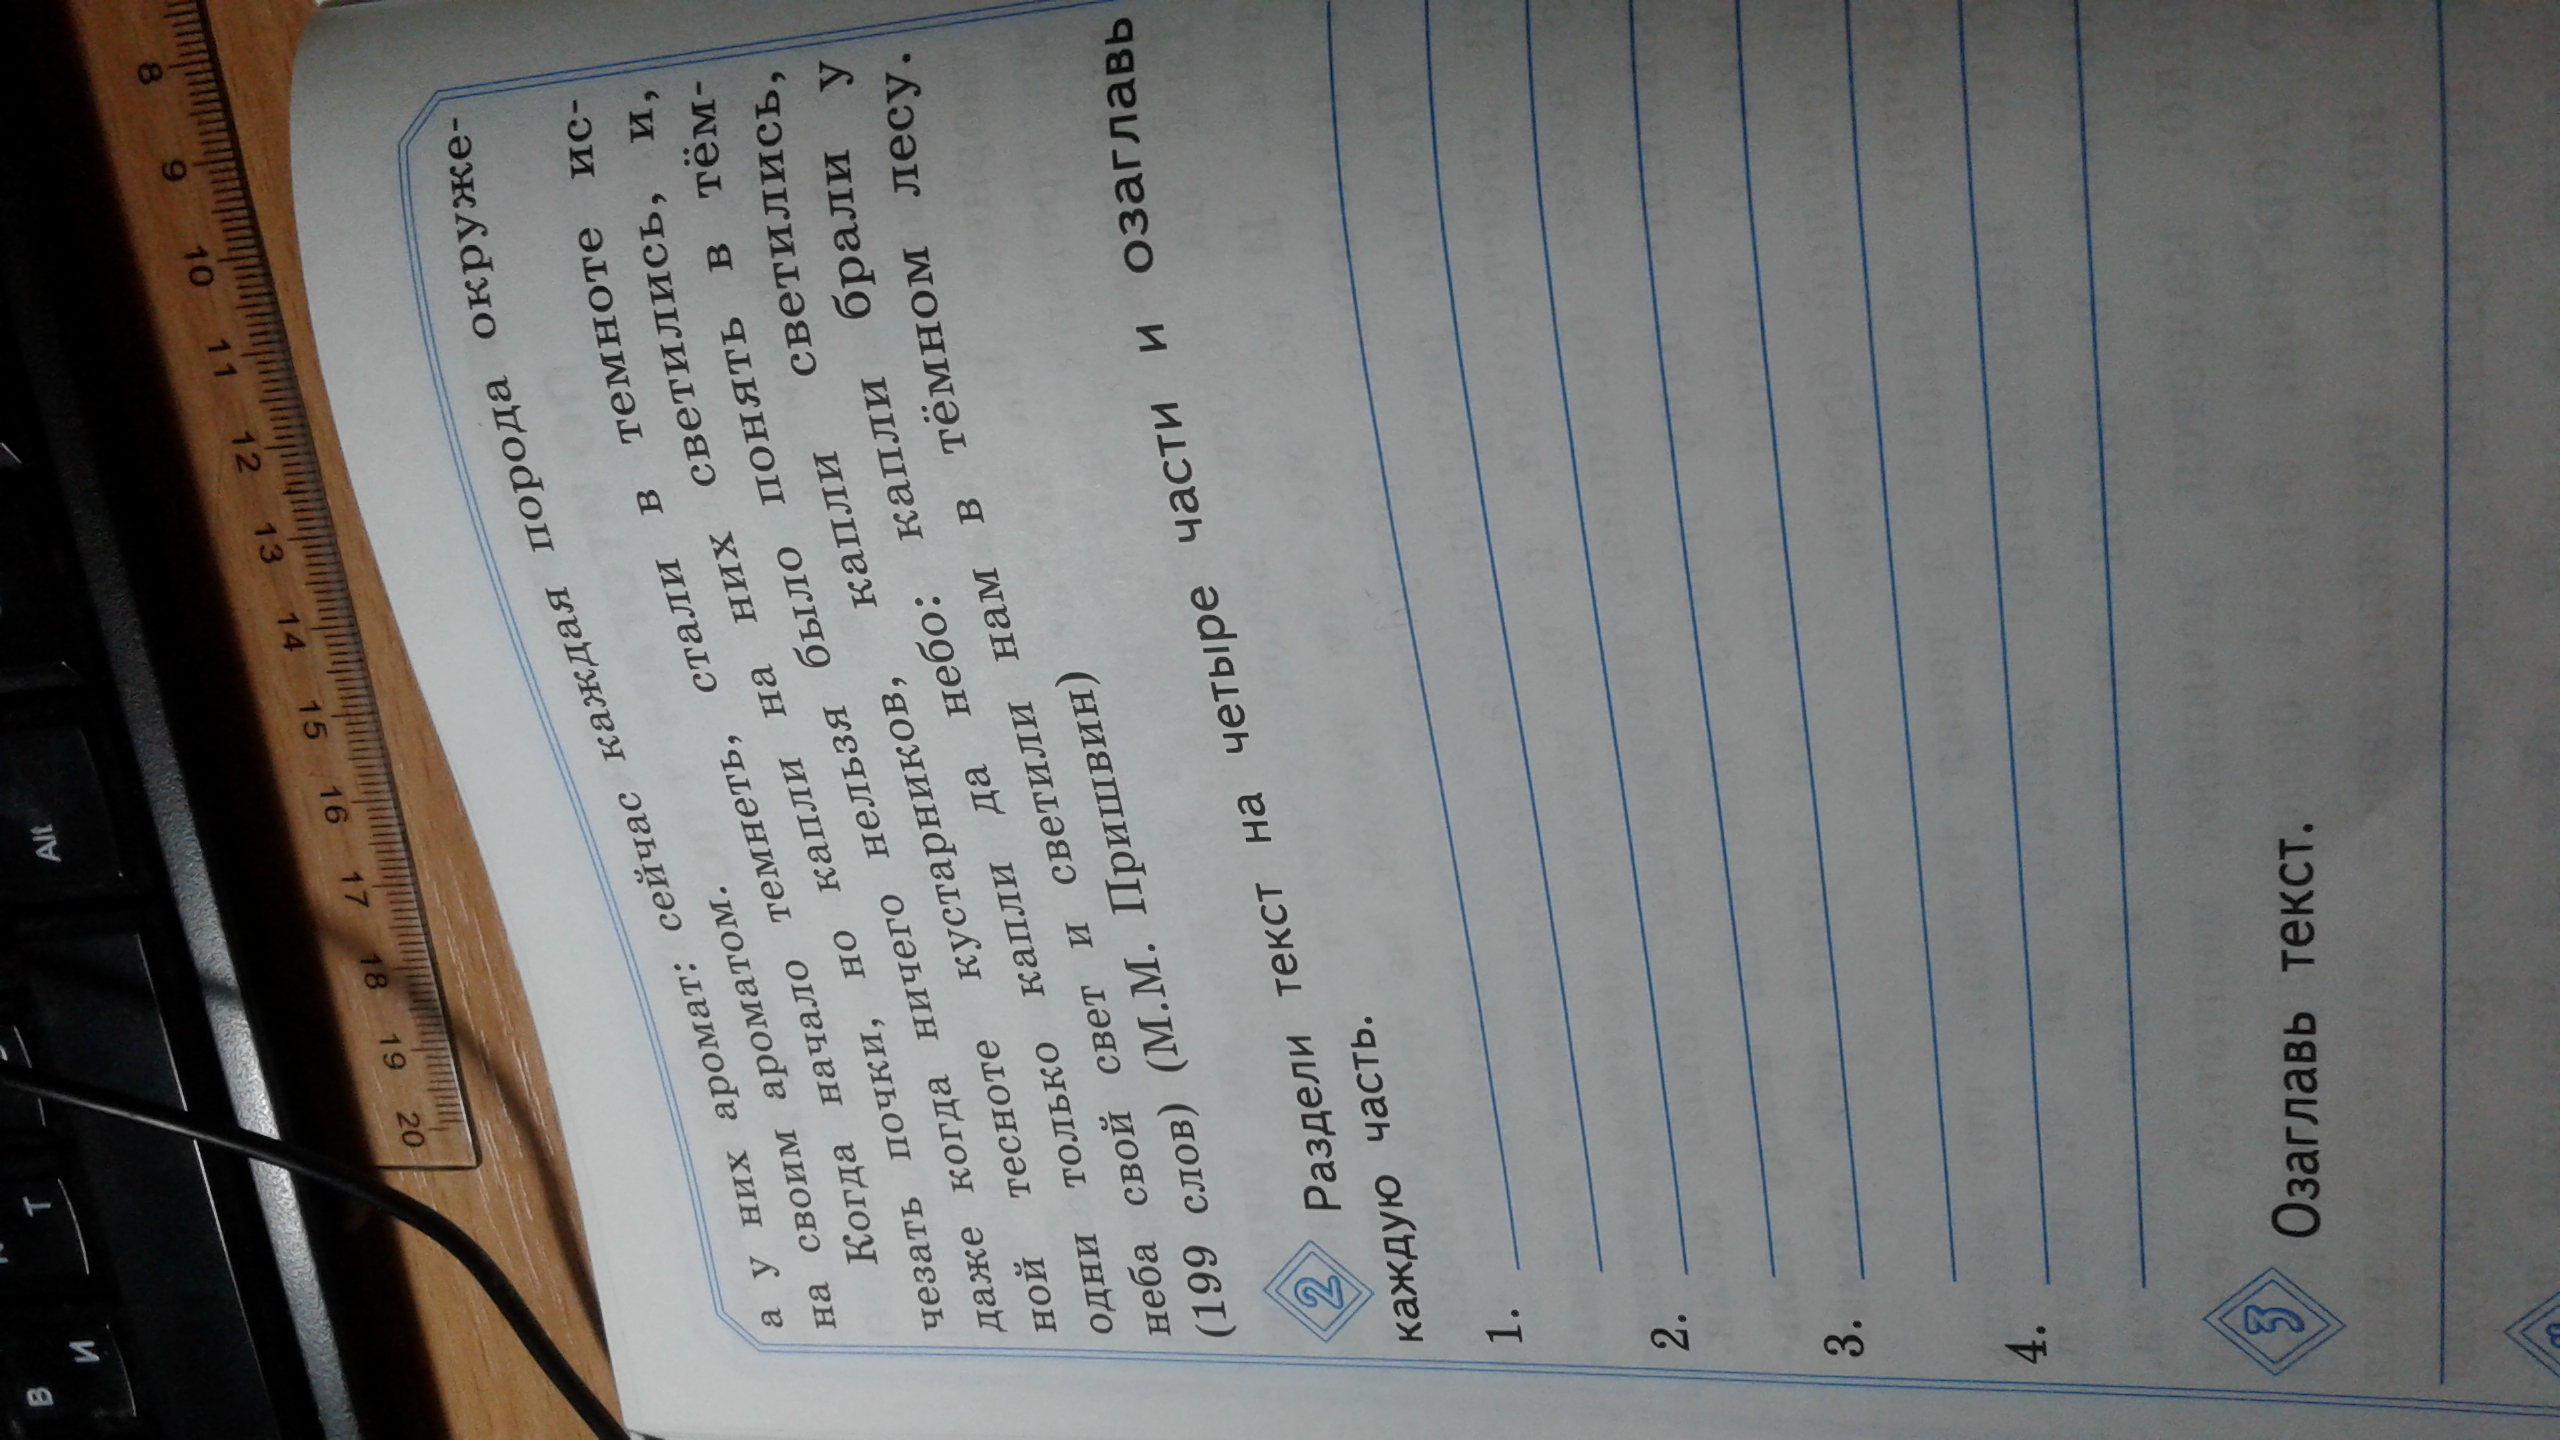 а у них аромат: сейчас каждая порода окруже-
на своим ароматом.
Когда начало темнеть, стали в темноте ис-
чезать почки, но капли на них светились, и,
даже когда ничего нельзя было понять в тём-
ной тесноте кустарников, капли светились,
одни только капли да небо: капли брали у
неба свой свет и светили нам в тёмном лесу.
(199 слов) (М.М. Пришвин)
2 Раздели текст на четыре части и озаглавь
каждую часть.
1.
2.
3.
4.
3 Озаглавь текст.
8 9 10 11 12 13 14 15 16 17 18 19 20
Alt
Т
В
И